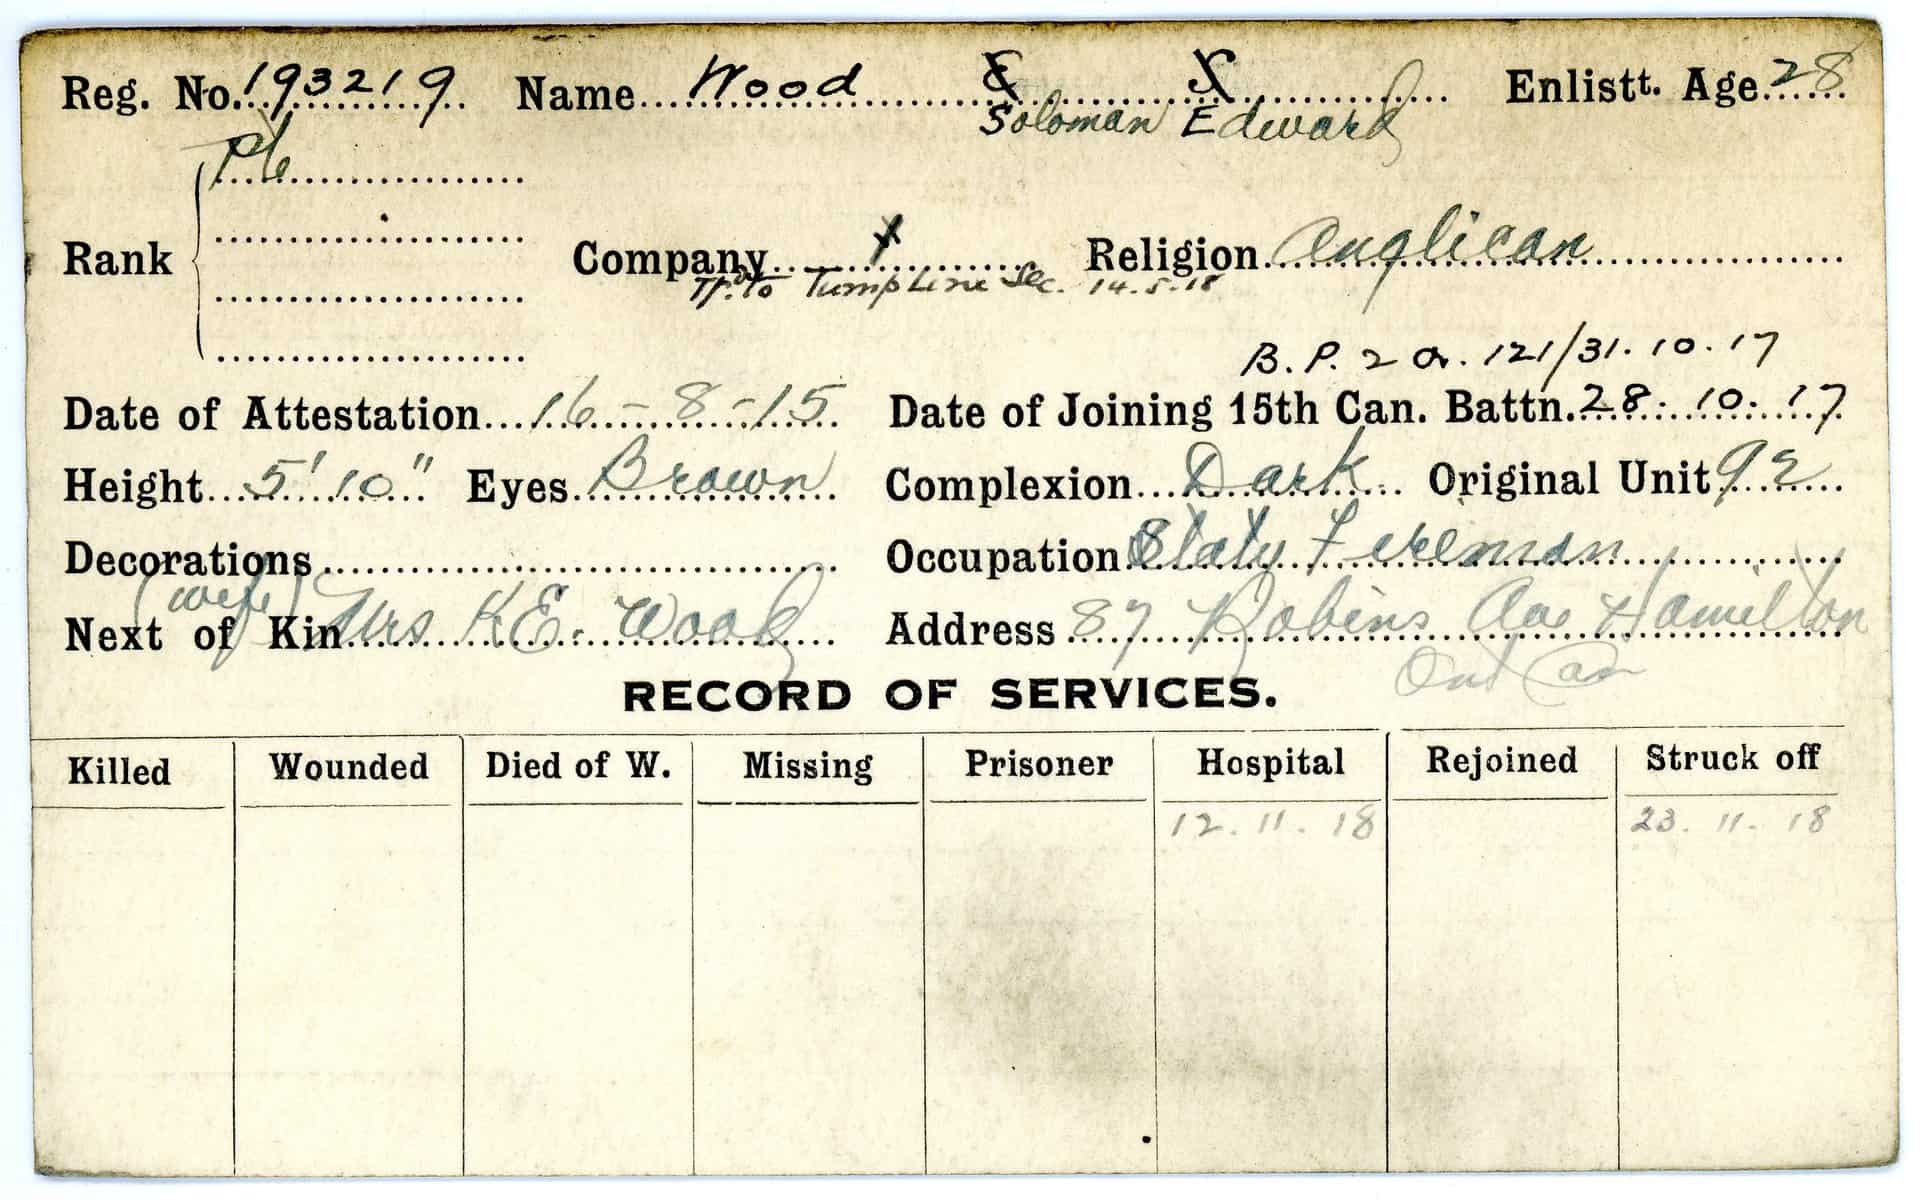 Reg. No. 193219 Name Wood E S Enlistt. Age 28
Soloman Edward
Pte
Rank Company Religion Anglican
Tr. to Tump Line Sec. 14.5.18
B. P. 2 Or. 121/31.10.17
Date of Attestation 16-8-15 Date of Joining 15th Can. Battn. 28.10.17
Height 5'10" Eyes Brown Complexion Dark Original Unit 92
Decorations Occupation Fireman
(wife)
Next of Kin Mrs K.E. Wood Address 87 Robins Ave Hamilton
Ont Can
RECORD OF SERVICES.
Killed Wounded Died of W. Missing Prisoner Hospital Rejoined Struck off
12.11.18 23.11.18